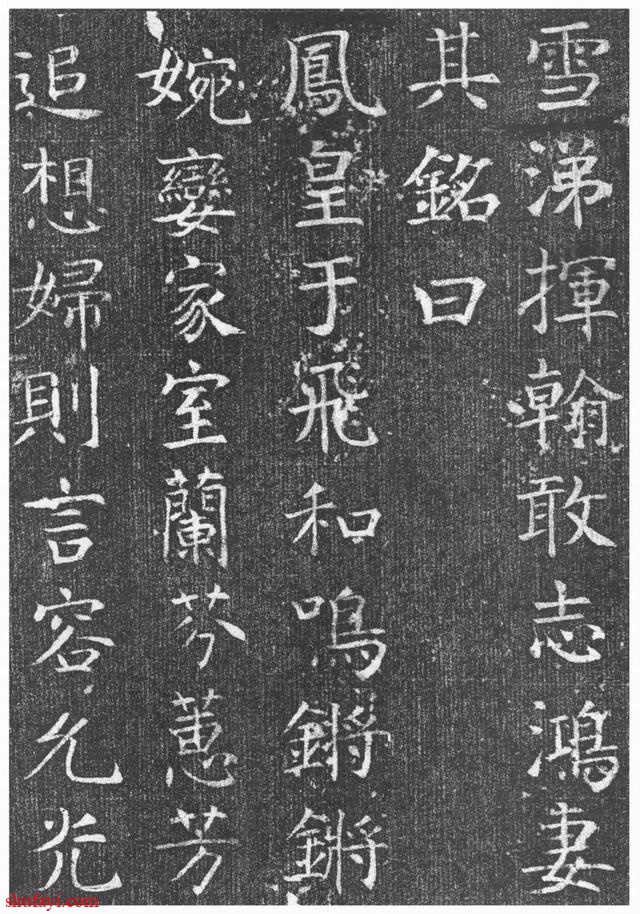 雪涕揮翰敢志鴻妻
其銘曰
鳳皇于飛和鳴鏘鏘
婉孌家室蘭芬蕙芳
追想婦則言容允光
shufayi.com